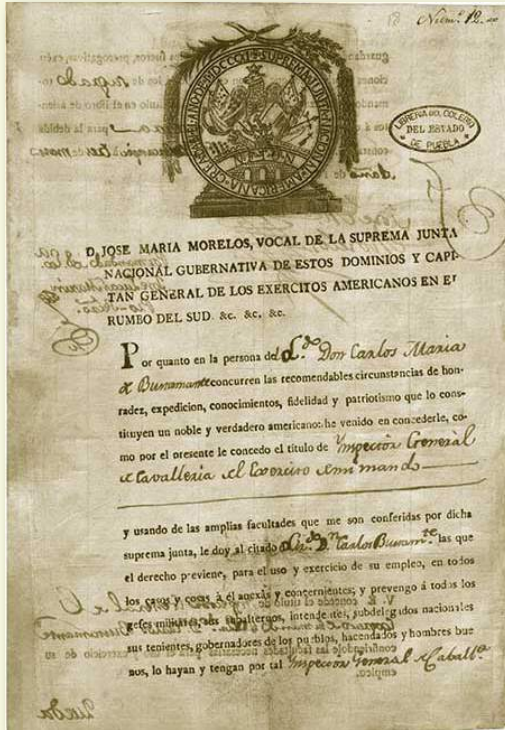 Num.º 12.
SUPREMA JUNTA NACIONAL AMERICANA
LIBRERIA DEL COLEGIO
DEL ESTADO
DE PUEBLA
D. JOSE MARIA MORELOS, VOCAL DE LA SUPREMA JUNTA
NACIONAL GUBERNATIVA DE ESTOS DOMINIOS Y CAPI-
TAN GENERAL DE LOS EXERCITOS AMERICANOS EN EL
RUMBO DEL SUD. &c. &c. &c.
Por quanto en la persona del L.do Don Carlos Maria
de Bustamante concurren las recomendables circunstancias de hon-
radez, expedicion, conocimientos, fidelidad y patriotismo que lo cons-
tituyen un noble y verdadero americano: he venido en concederle, co-
mo por el presente le concedo el título de Ynspector General
de Cavalleria del Exercito de mi mando
y usando de las amplias facultades que me son conferidas por dicha
suprema junta, le doy al citado L.do Dn. Carlos Bustam.te las que
el derecho previene, para el uso y exercicio de su empleo, en todos
los casos y cosas á él anexâs y concernientes; y prevengo á todos los
gefes militares, sus subalternos, intendentes, subdelegados nacionales
sus tenientes, gobernadores de los pueblos, hacendados y hombres bue
nos, lo hayan y tengan por tal Ynspector General de Caball.a